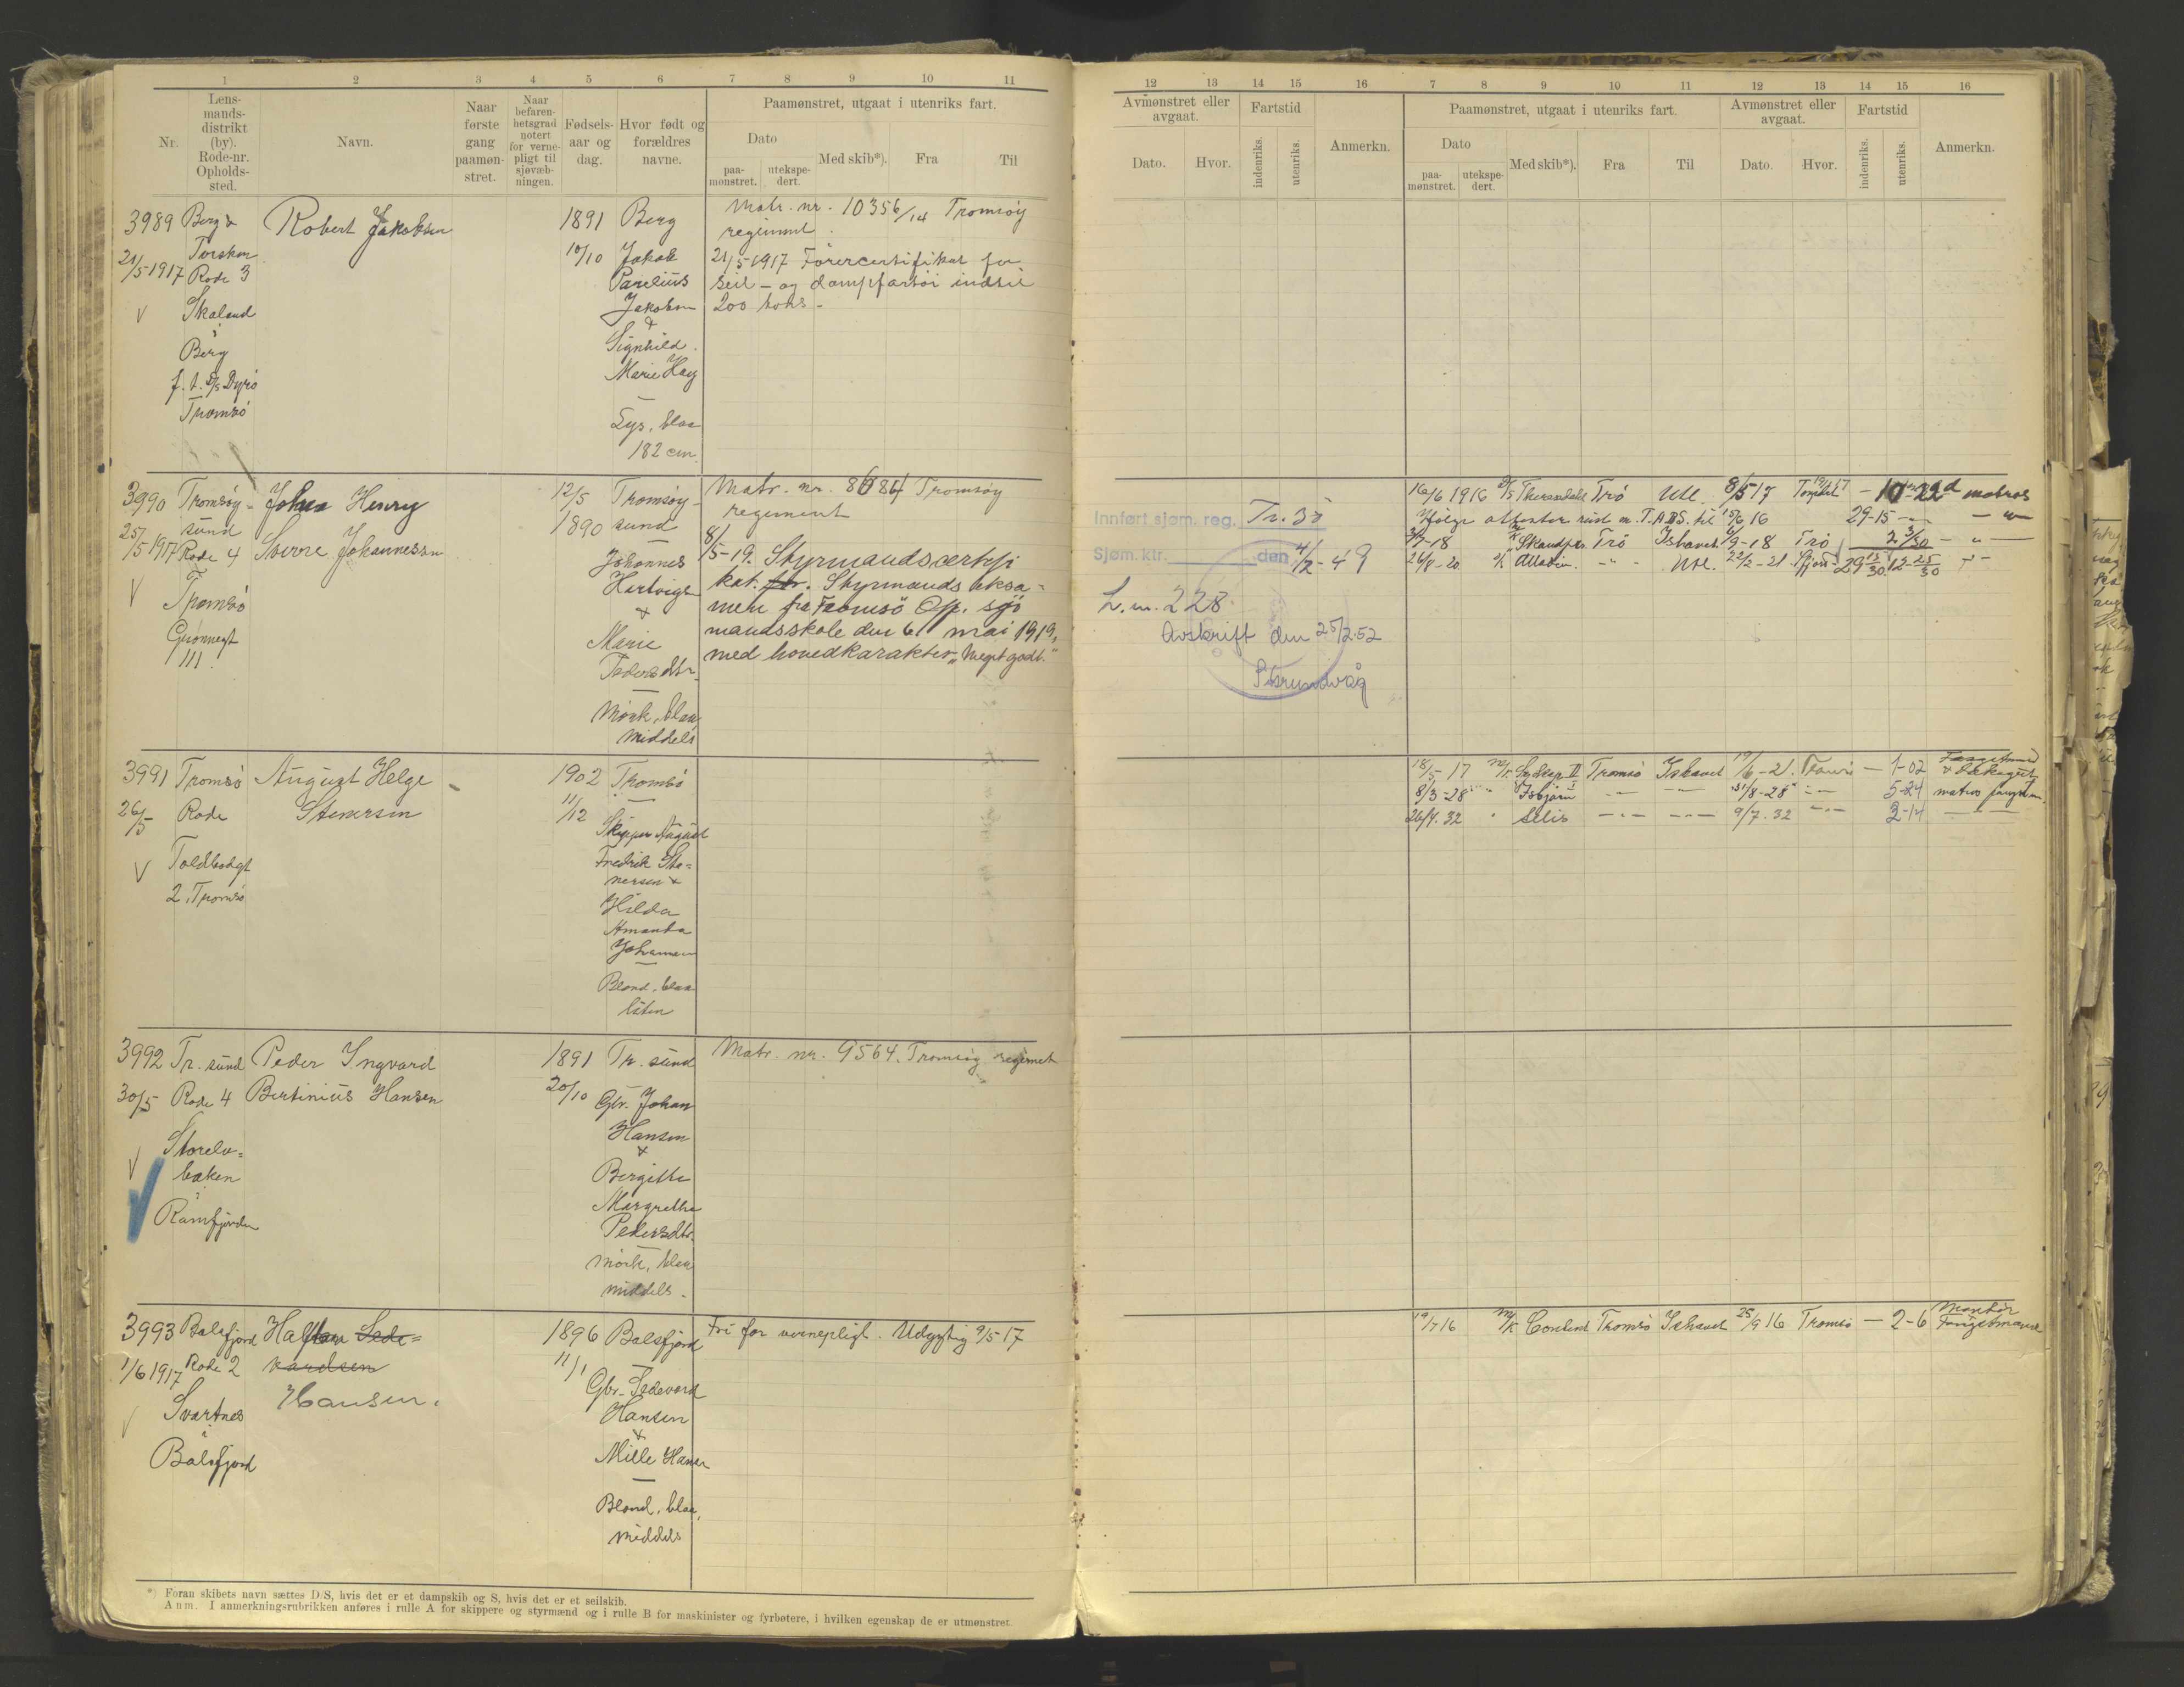 1 2 3 4 5 6 7 8 9 10 11
Nr. Lensmandsdistrikt (by). Rode-nr. Opholdssted. Navn. Naar første gang paamønstret. Naar befarenhetsgrad notert for vernepligt til sjøvæbningen. Fødselsaar og dag. Hvor født og forældres navne.
Paamønstret, utgaat i utenriks fart.
Dato paamønstret. utekspedert. Med skib*). Fra Til
3989 Berg & Robert Jakobsen 1891 Berg
21/5-1917 Torsken 10/10 Jakob
Rode 3 Parelius
Skaland Jakobsen
i &
Berg Signhild
f. t. D/S Dyrø Marie Hay
Tromsø
Lys, blaa
182 cm.
Matr. nr. 10356/14 Tromsøy
regiment.
21/5-1917 Førercertifikat for
seil- og dampfartøi indtil
200 tons.
3990 Tromsøy- Johan Henry 12/5 Tromsøy-
25/5 1917 sund Sverre Johannessen 1890 sund
Rode 4 Johannes
Tromsø Hartvigsen
Grønnegt &
111. Marie
Pedersdtr.
Mørk, blaa,
middels
Matr. nr. 8684 Tromsøy
regiment
8/5-19. Styrmandscertifi
kat. Styrmandseksa-
men fra Tromsö Off. sjö
mandsskole den 6 mai 1919,
med hovedkarakter "Meget godt."
3991 Tromsø August Helge 1902 Tromsø
26/5 Rode Stenersen 11/12
Toldbodgt Skipper August
2, Tromsø Fredrik Ste-
nersen &
Hilda
Amanda
Johansen
Blond, blaa
liten
3992 Tr. sund Peder Ingvard 1891 Tr. sund
30/5 Rode 4 Bertinius Hansen 20/10 Gbr. Johan
Storelv- Hansen
baken &
i Bergitha
Ramfjorden Margretha
Pedersdtr.
Mørk, blaa
middels.
Matr. nr. 9564. Tromsøy regiment
3993 Balsfjord Halfdan Sede- 1896 Balsfjord
1/6 1917 Rode 2 vardsen 11/1
Svartnes Hansen. Gbr. Sedevard
i Hansen
Balsfjord &
Mille Hansen
Blond, blaa,
middels
Fri for vernepligt. Udygtig 9/5-17
*) Foran skibets navn sættes D/S, hvis det er et dampskib og S, hvis det er et seilskib.
Anm. I anmerkningsrubrikken anføres i rulle A for skippere og styrmænd og i rulle B for maskinister og fyrbøtere, i hvilken egenskap de er utmønstret.
12 13 14 15 16 7 8 9 10 11 12 13 14 15 16
Avmønstret eller avgaat. Fartstid Anmerkn. Paamønstret, utgaat i utenriks fart. Avmønstret eller avgaat. Fartstid Anmerkn.
Dato. Hvor. indenriks. utenriks. Dato paamønstret. utekspedert. Med skib*). Fra Til Dato. Hvor. indenriks. utenriks.
Innført sjøm. reg. Tr. 30
Sjøm.ktr. den 4/2-49
L.m. 228
Avskrift den 25/2.52
16/6 1916 D/S Trø Utl. 8/5 17 matros
Ifølge attester 15/6 16 29-15
3/7-18 Trø Ishavet 6/9-18 Trø 2 3/30
26/8-20 Alladin Utl. 22/2-21 29 15/30 12-25/30
18/5-17 M/K Sydkap II Tromsø Ishavet 19/6-21. 1-02
8/3-28 " Isbjørn 31/8-28 5-24 matros
26/4.32 " Selis 9/7.32 2-14
19/7 16 M/K Tromsø Ishavet 25/9 16 Tromsø - 2-6 Fangstmand